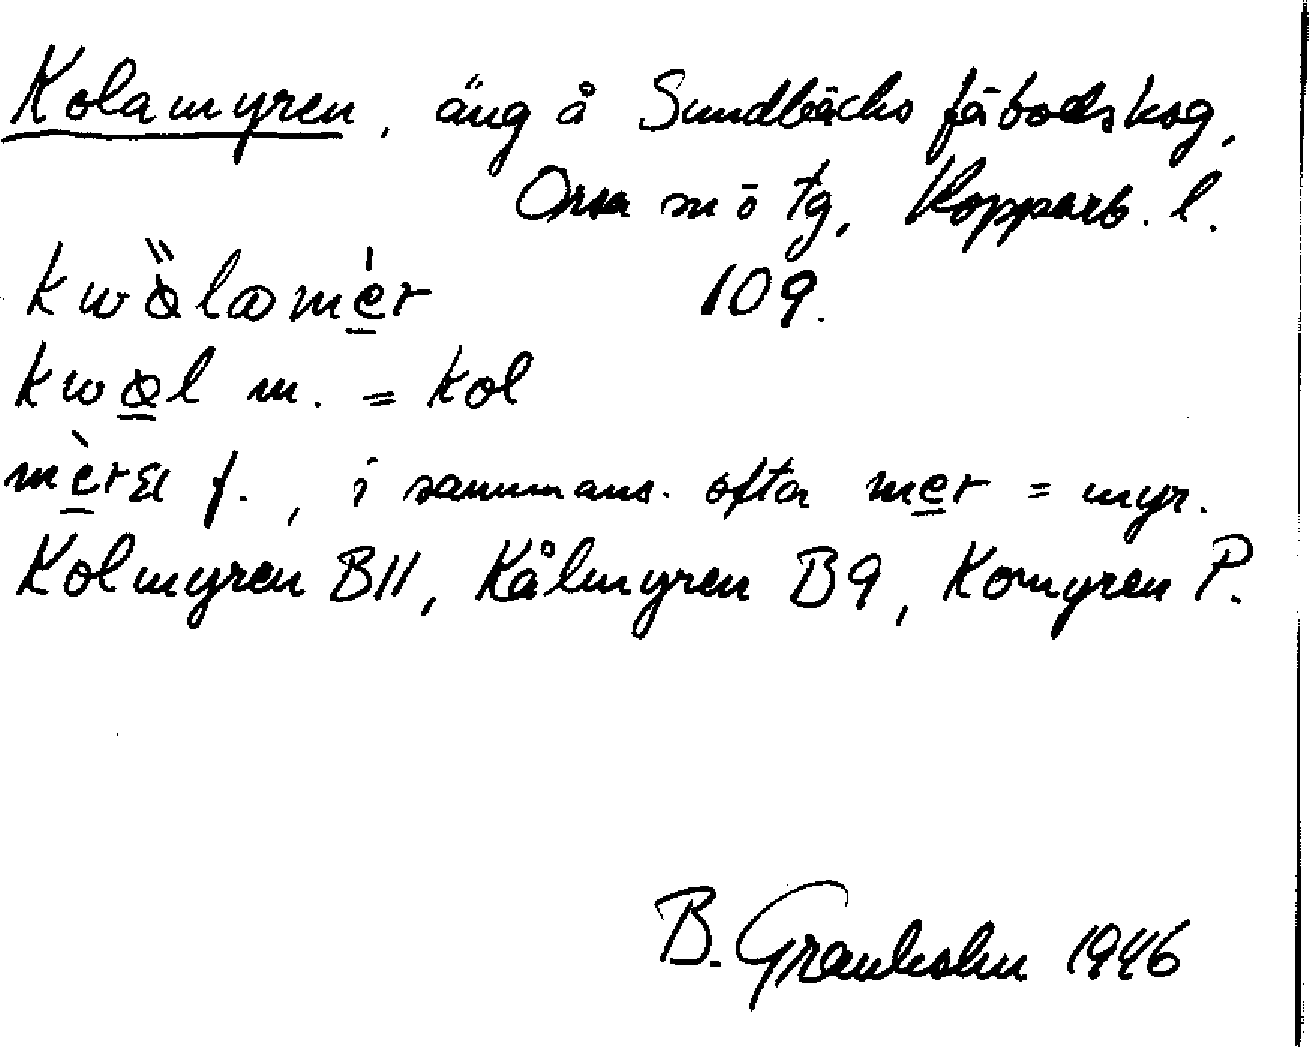 Kolamyren, äng å Sundbäcks fäbodskog,
Orsa sn o tg, Kopparb. l.
109.
m. = kol
f., i sammans. ofta mer = myr.
Kolmyren B11, Kålmyren B9, Komyren P.
B. Granholm 1946